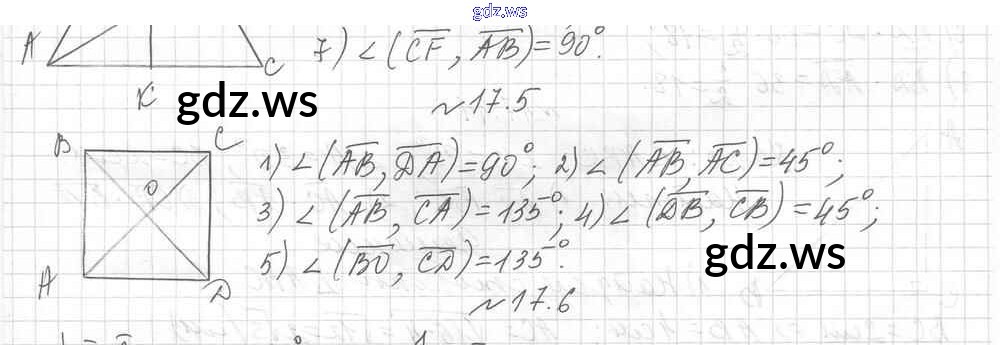 gdz.ws
A
C
K
7) ∠(CF, AB)=90°.
gdz.ws
~17.5
B
C
O
A
D
1) ∠(AB, DA)=90°; 2) ∠(AB, AC)=45°;
3) ∠(AB, CA)=135°; 4) ∠(DB, CB)=45°;
5) ∠(BO, CD)=135°.
gdz.ws
~17.6